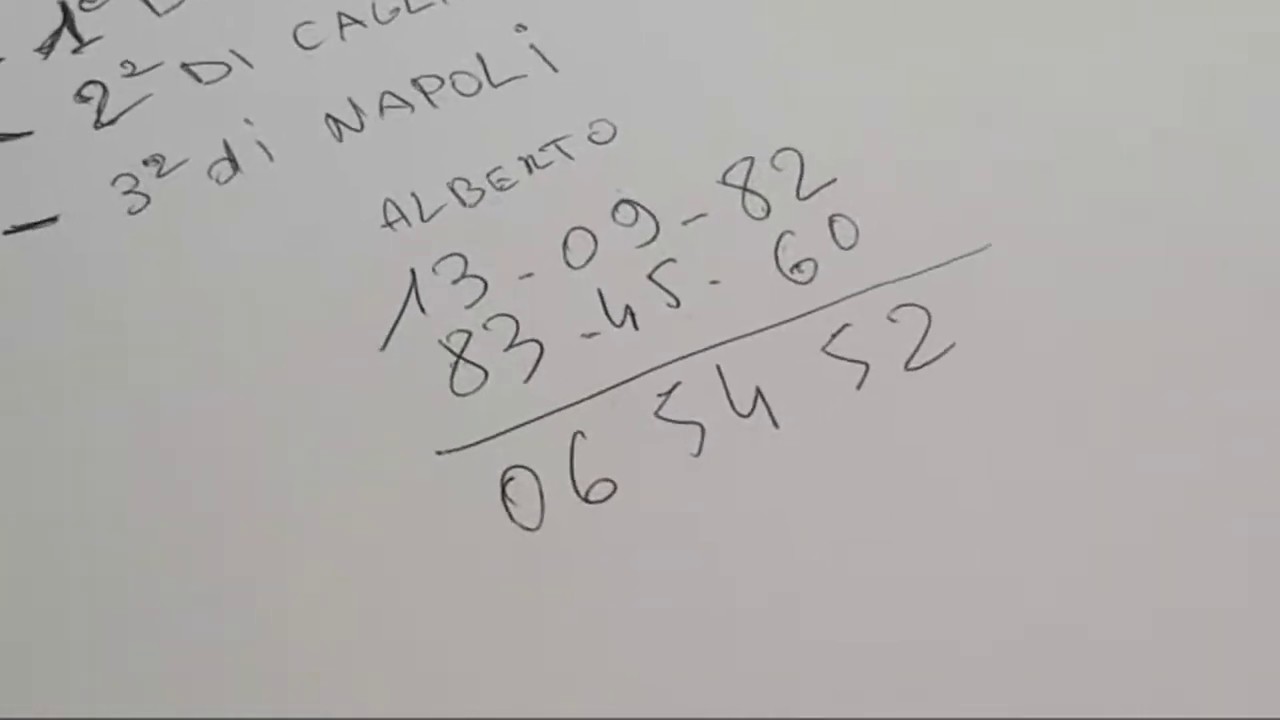 1°
- 2° DI
- 3° di NAPOLi
ALBERTO
13-09-82
83-45-60
06 54 52